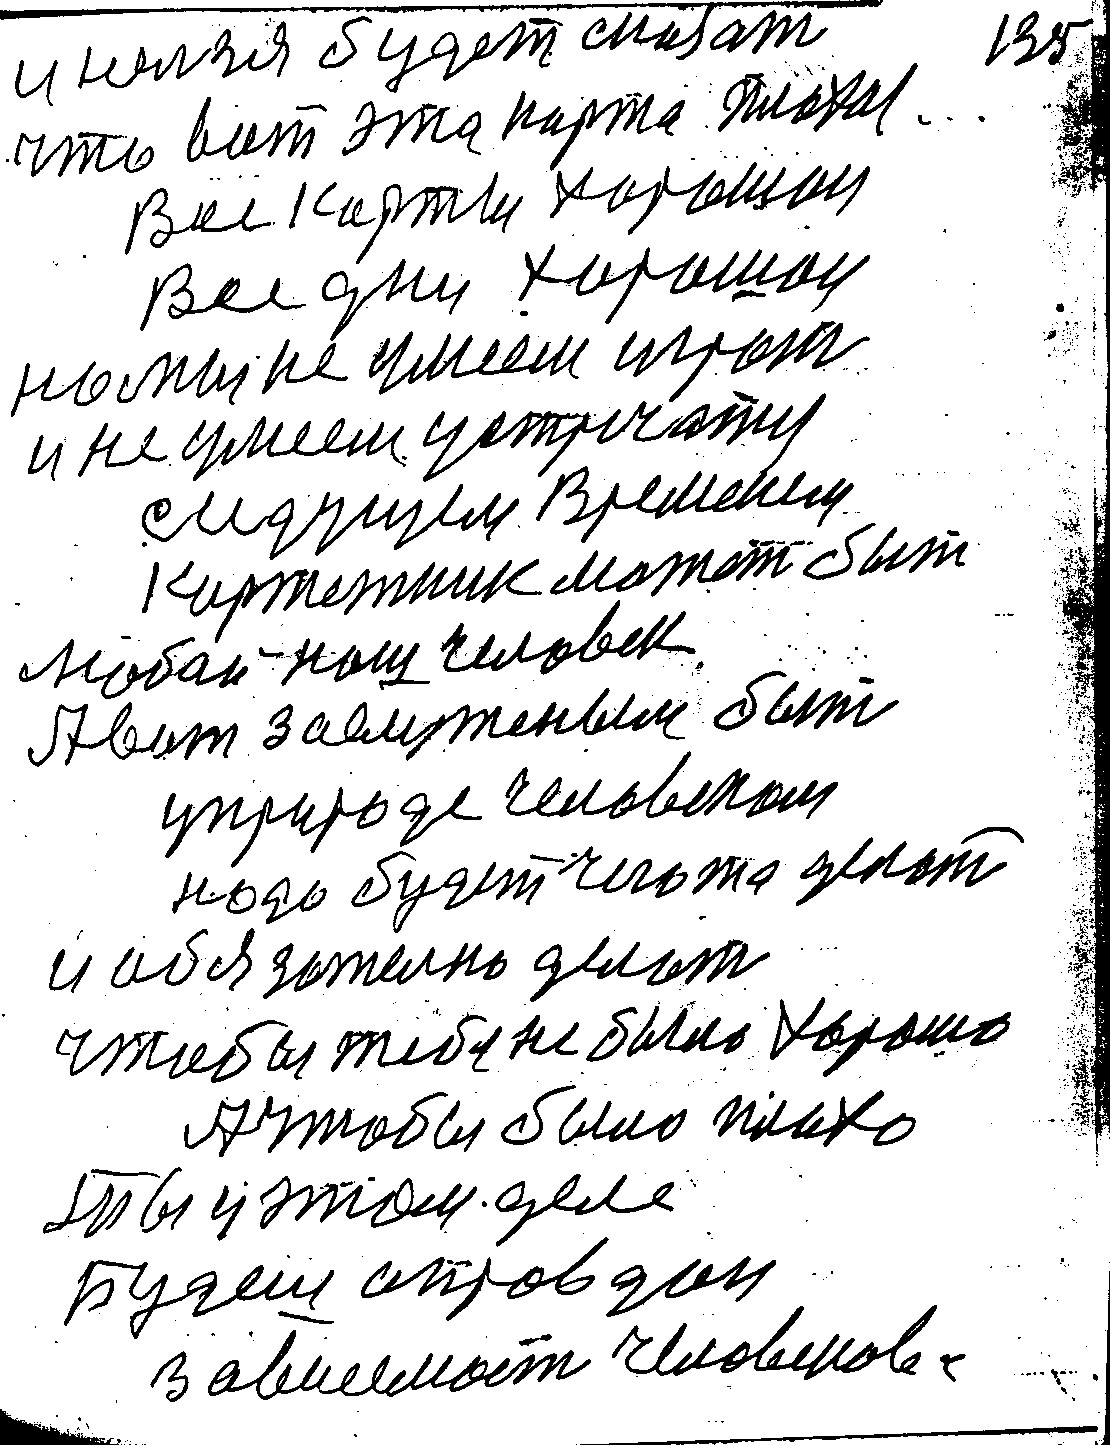 135
и нелзя будет сказат
что вот эта карта плохая...
Все карты хорошаи
Все дни хорошаи
но мы не умеем играт
и не умеем устричатця
следущем Временем
Картежник можот быт
Любай наш человек
А вот заслуженым быт
уприроде человеком
надо будет чегота делат
и обязателно делат
чтобы тебе не было хорошо
А чтобы было плахо
Ты у этом деле
Будеш оправдан
зависемаст человекав